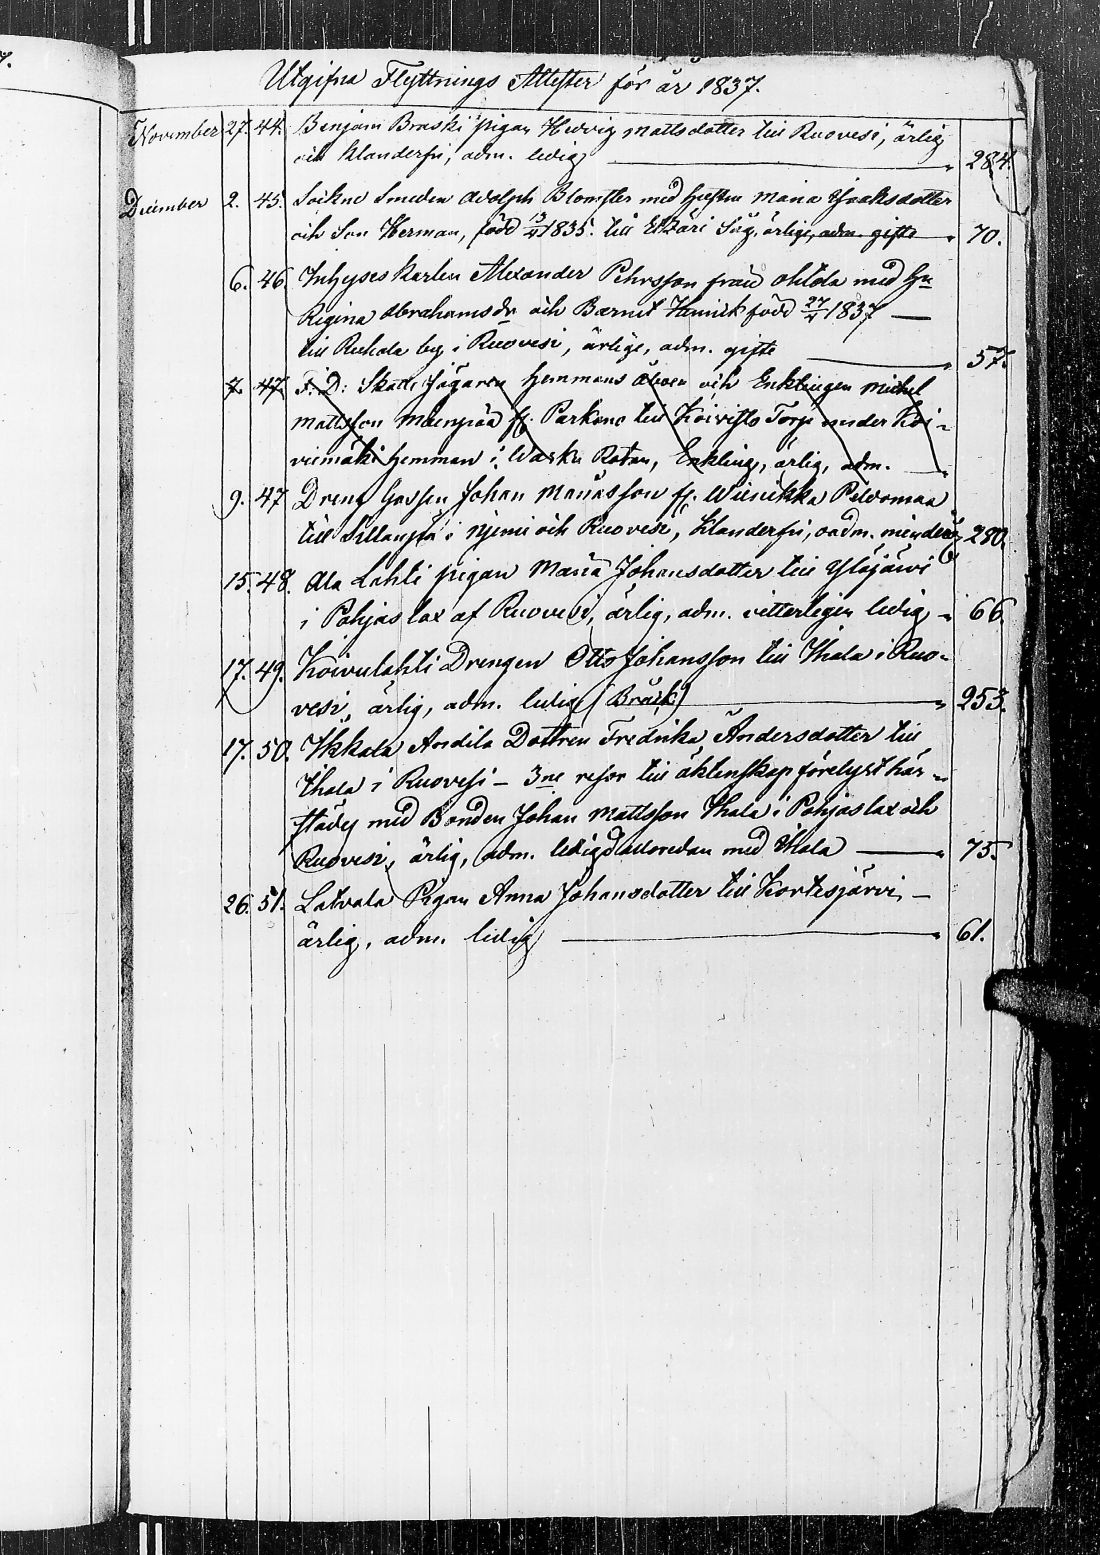 7.
Utgifna Flyttnings Attester för år 1837.
November 27. 44. Benjam Braski pigan Hedvig Mattsdotter till Ruovesi, ärlig
och klanderfri, adm. ledig 284.
December 2. 45. Sockne Smeden Adolph Blomster med Hustru Maria Isaksdotter
och Son Herman, född 1835. till Etzäri Såg, ärlige, adm. gifte 70.
6. 46. Inhyses karlen Alexander Pehrsson från Ohtola med Hu
Regina Abrahamsdr och Barnet Henrik född 1837
till Ruhala by i Ruovesi, ärlige, adm. gifte 57.
7. 47. F: D: Skatte Jägaren Hemmans Åboen och Enklingen Michel
Mattsson Mäenpää fr. Parkano till Koivisto Torp under Koi-
viemäki Hemman i Waski Rotan, Enkling, ärlig, adm.
9. 47 Dreng Gossen Johan Manasson fr. Wiinikka Peldomaa
till Sillanpä i Njemi och Ruovesi, klanderfri, oadm. minderår 280.
15. 48. Ala Lahti pigan Maria Johansdotter till Ylöjärvi
i Pohjaslax af Ruovesi, ärlig, adm. vitterligen ledig 66.
17. 49. Koivulahti Drengen Otto Johansson till Ihala i Ruo-
vesi, ärlig, adm. ledig (Bräck) 253.
17. 50. Ikkala Andila Dottren Fredrika Andersdotter till
Ihala i Ruovesi - 3ne resor till äktenskap förelyst här-
städes med Bonden Johan Mattsson Ihala i Pohjaslax och
Ruovesi, ärlig, adm. ledig allaredan med Ihala 75.
26. 51. Latvala Pigan Anna Johansdotter till Kortesjärvi -
ärlig, adm. ledig 61.